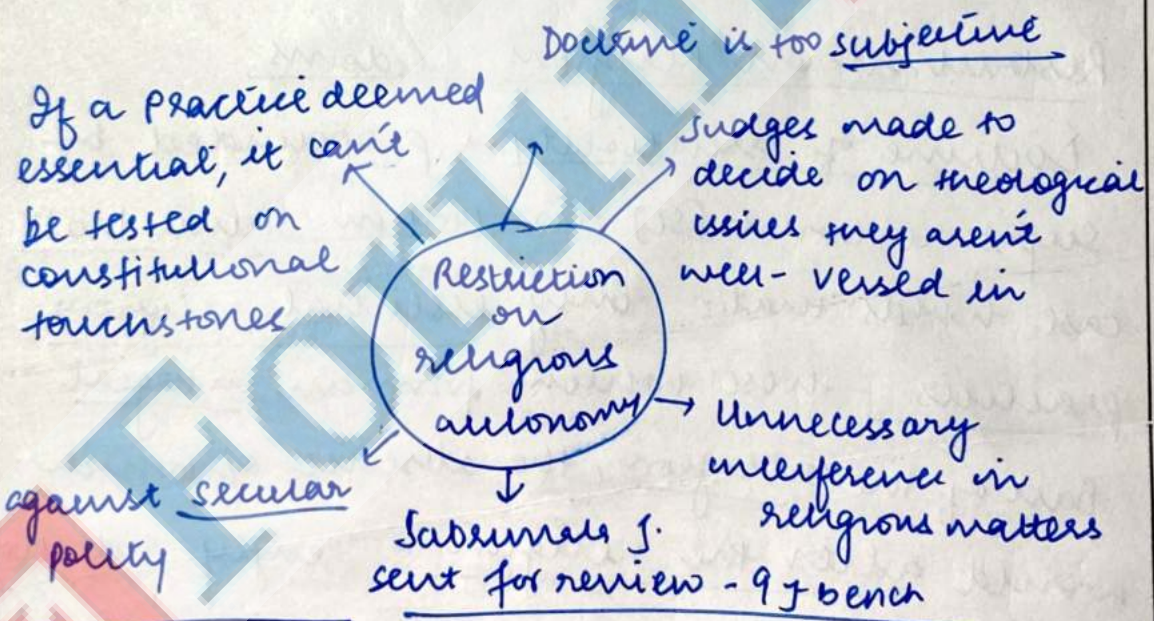 Doctrine is too subjective
If a practice deemed
essential, it can't
be tested on
constitutional
touchstones
Judges made to
decide on theological
issues they aren't
well-versed in
Restriction
on
religious
autonomy
Unnecessary
interference in
religious matters
against secular
polity
Sabrimala J.
sent for review - 9 J bench
Forum